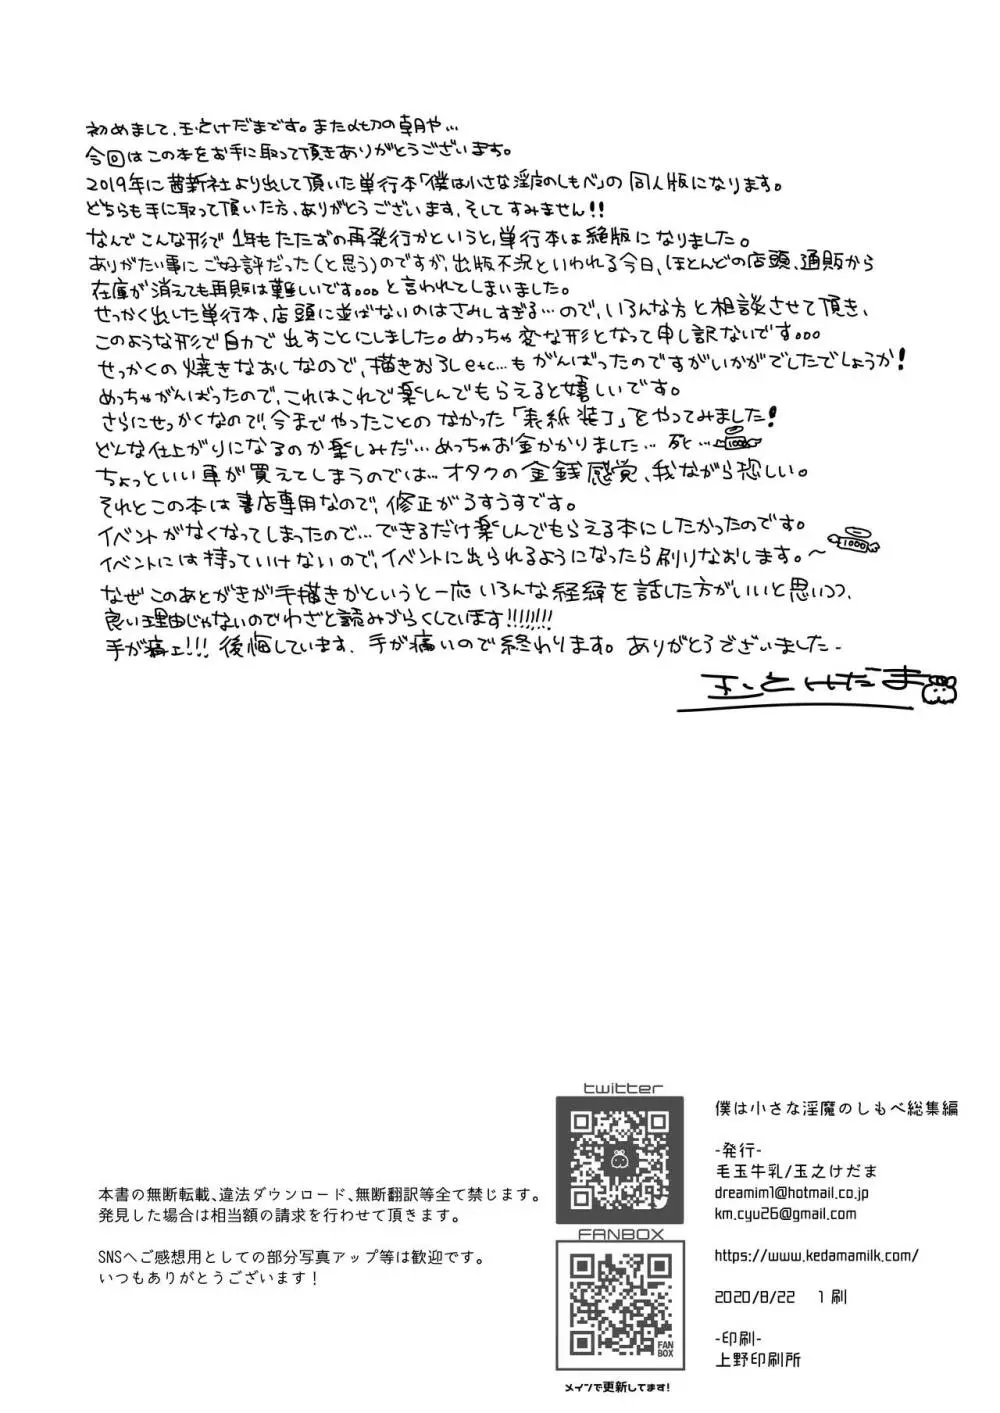 初めまして、玉之けだまです。また〆切の朝や…
今回はこの本をお手に取って頂きありがとうございます。
2019年に茜新社より出して頂いた単行本「僕は小さな淫魔のしもべ」の同人版になります。
どちらも手に取って頂いた方、ありがとうございます、そしてすみません!!
なんでこんな形で1年もたたずの再発行かというと、単行本は絶版になりました。
ありがたい事にご好評だった(と思う)のですが、出版不況といわれる今日、ほとんどの店頭、通販から
在庫が消えても再販は難しいです。。。と言われてしまいました。
せっかく出した単行本、店頭に並ばないのはさみしすぎる…ので、いろんな方と相談させて頂き、
このような形で自力で出すことにしました。めっちゃ変な形となって申し訳ないです。。。
せっかくの焼きなおしなので、描きおろしetc…もがんばったのですがいかがでしたでしょうか!
めっちゃがんばったので、これはこれで楽しんでもらえると嬉しいです。
さらにせっかくなので、今までやったことのなかった「表紙装丁」をやってみました!
どんな仕上がりになるのか楽しみだ…めっちゃお金かかりました…死…
ちょっといい車が買えてしまうのでは…オタクの金銭感覚、我ながら恐しい。
それとこの本は書店専用なので、修正がうすうすです。
イベントがなくなってしまったので…できるだけ楽しんでもらえる本にしたかったのです。
イベントには持っていけないので、イベントに出られるようになったら刷りなおします。~
1000
なぜこのあとがきが手描きかというと一応いろんな経緯を話した方がいいと思いつつ、
良い理由じゃないのでわざと読みづらくしています!!!!!!!
手が痛ェ!!! 後悔しています、手が痛いので終わります。ありがとうございました-
玉之けだま
twitter
FANBOX
FAN
BOX
メインで更新してます!
本書の無断転載、違法ダウンロード、無断翻訳等全て禁じます。
発見した場合は相当額の請求を行わせて頂きます。
SNSへご感想用としての部分写真アップ等は歓迎です。
いつもありがとうございます!
僕は小さな淫魔のしもべ総集編
-発行-
毛玉牛乳/玉之けだま
dreamim1@hotmail.co.jp
km.cyu26@gmail.com
https://www.kedamamilk.com/
2020/8/22 1刷
-印刷-
上野印刷所